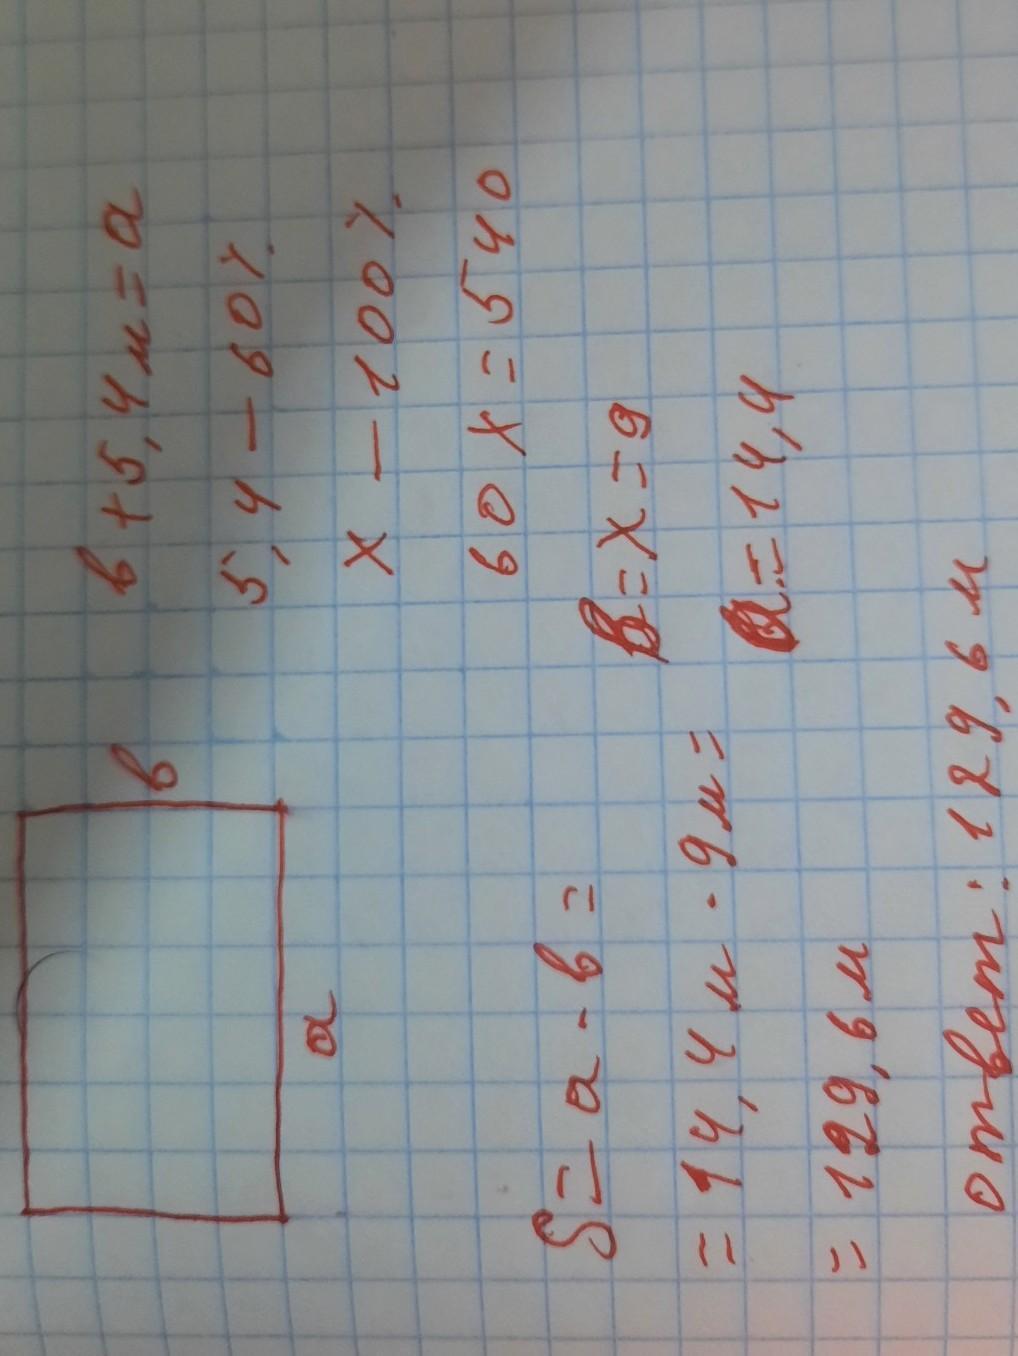 в
а
в + 5,4 м = а
5,4 — 60%
х — 100%
60х = 540
в = х = 9
а = 14,4
S = а · в =
= 14,4 м · 9 м =
= 129,6 м
ответ: 129,6 м